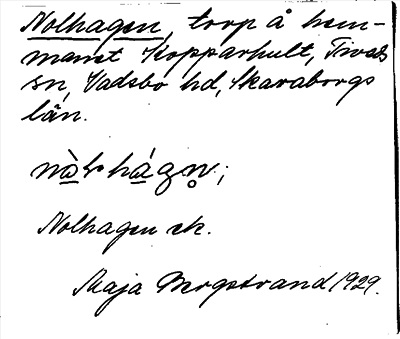 Nolhagen, torp å hem-
manet Kopparhult, Tiveds
sn, Vadsbo hd, Skaraborgs
län.
Nolhagen ek.
Maja Bergstrand 1929.